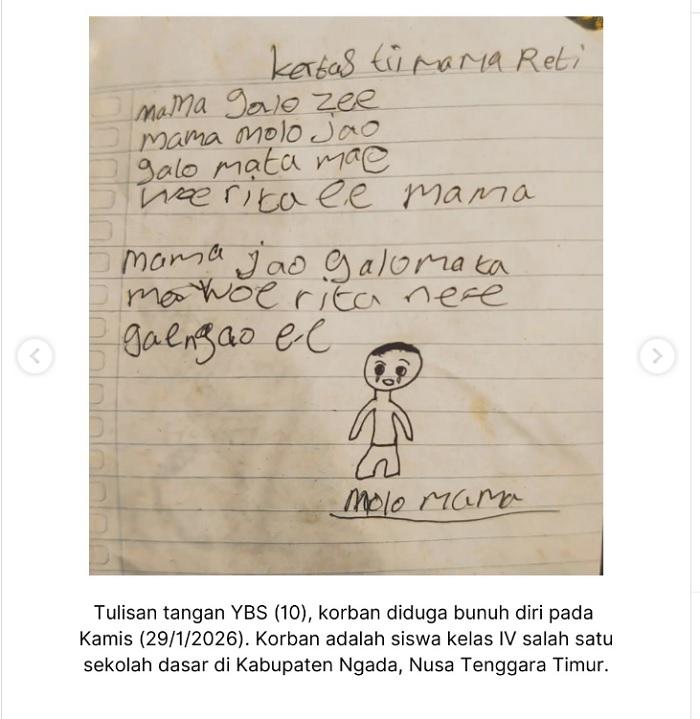 kertas tii mama Reti
mama galo zee
mama molo jao
galo mata mae
woe rita ee mama
mama jao galo mata
mae woe rita ne
gae ngao ee
molo mama
Tulisan tangan YBS (10), korban diduga bunuh diri pada
Kamis (29/1/2026). Korban adalah siswa kelas IV salah satu
sekolah dasar di Kabupaten Ngada, Nusa Tenggara Timur.